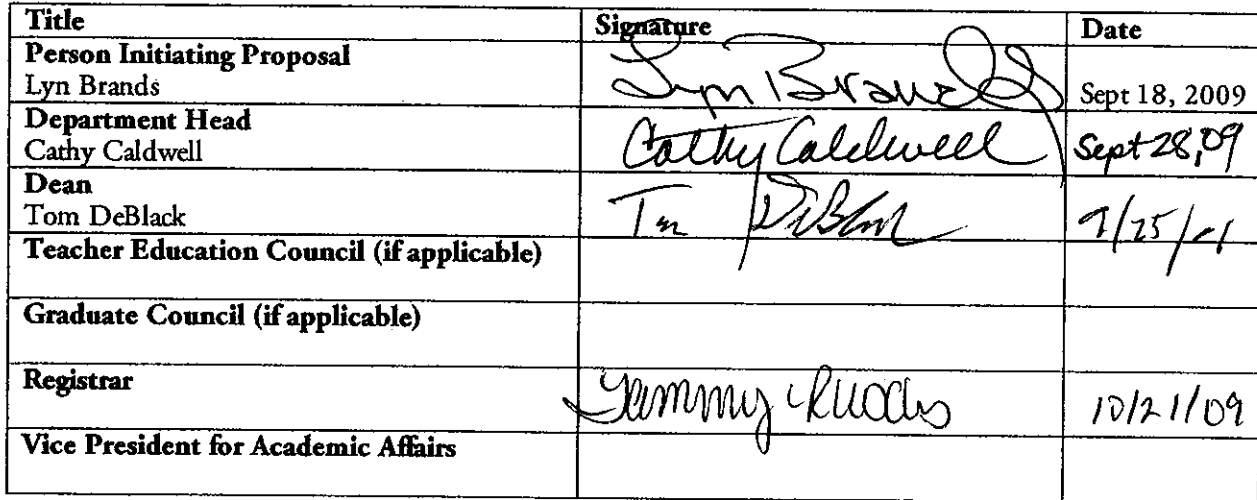 Title Signature Date
Person Initiating Proposal
Lyn Brands Lyn Brands Sept 18, 2009
Department Head
Cathy Caldwell Cathy Caldwell Sept 28, 09
Dean
Tom DeBlack Tom DeBlack
Teacher Education Council (if applicable)
Graduate Council (if applicable)
Registrar Tammy Rhodes 10/21/09
Vice President for Academic Affairs